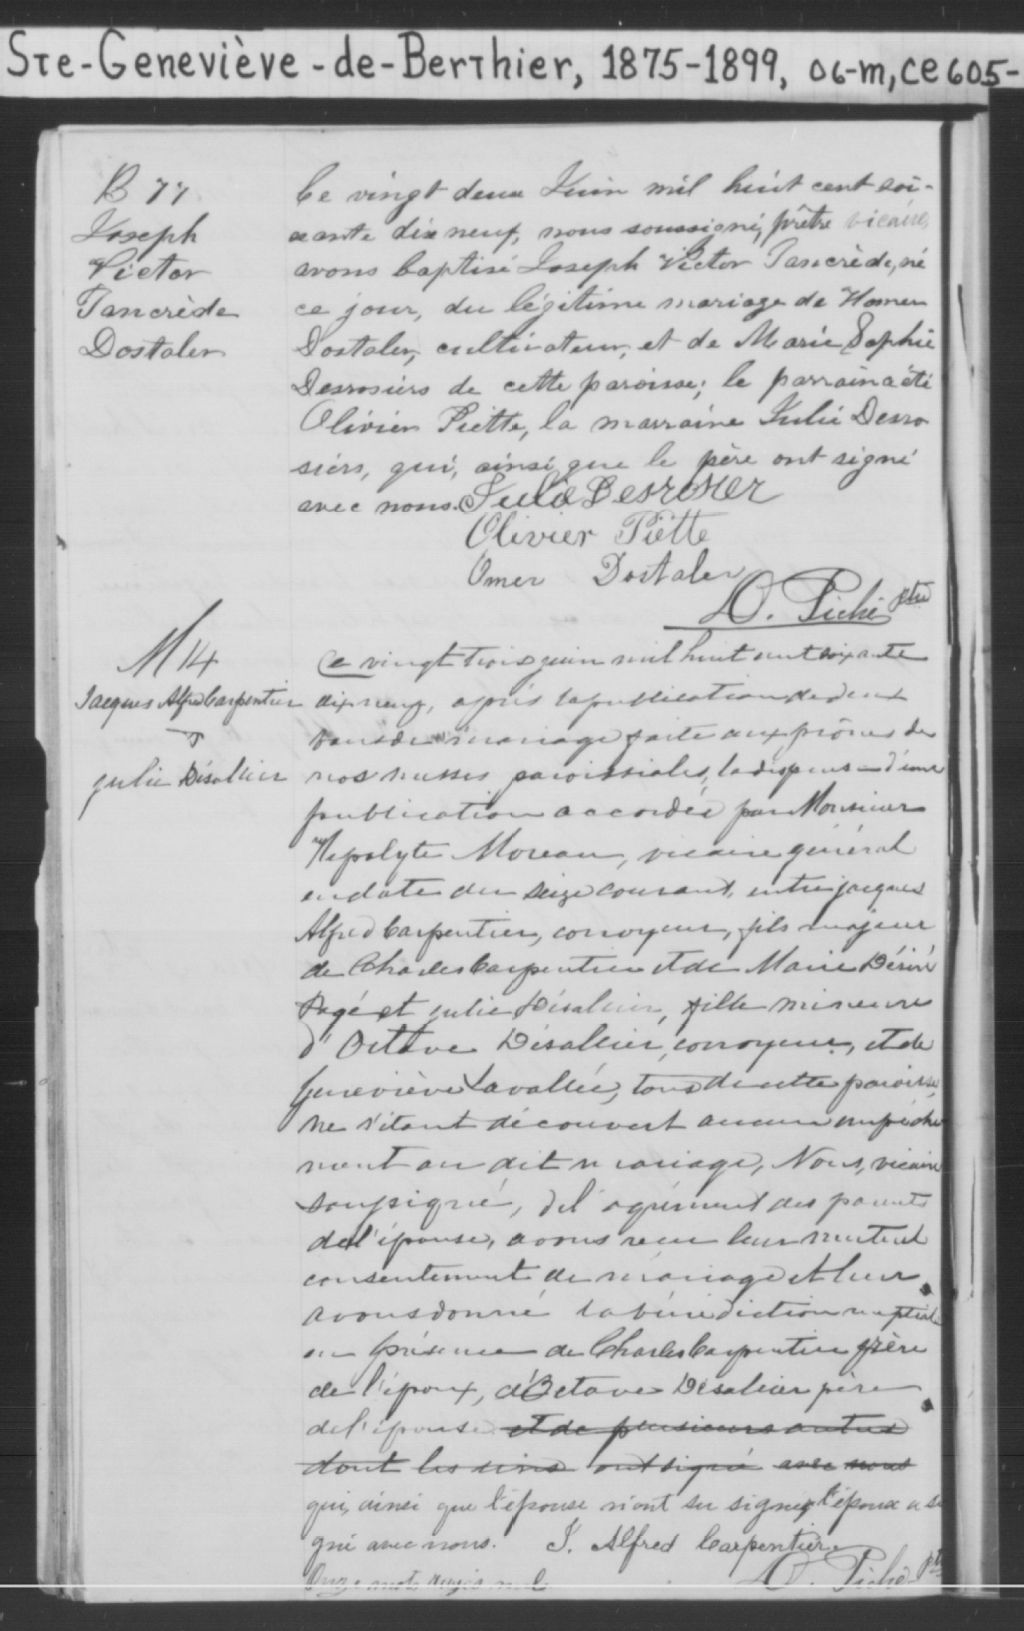 Ste-Geneviève-de-Berthier, 1875-1899, 06-m, ce605-
B 77
Joseph
Victor
Tancrède
Dostaler
Ce vingt deux Juin mil huit cent soi-
xante dix neuf, nous soussigné, prêtre vicaire,
avons baptisé Joseph Victor Tancrède, né
ce jour, du légitime mariage de Homer
Dostaler, cultivateur, et de Marie Sophie
Desrosiers de cette paroisse; le parrain a été
Olivier Piette, la marraine Julie Desro
siers, qui, ainsi que le père ont signé
avec nous. Julie Desrosier
Olivier Piette
Omer Dostaler
O. Piché ptre
M 14
Jacques Alfred Carpentier
&
Julie Désallier
Ce vingt trois juin mil huit cent soixante
dix neuf, après la publication de deux
bans de mariage faite aux prônes de
nos messes paroissiales, la dispense d'une
publication accordée par Monsieur
Hypolyte Moreau, vicaire général
en date du seize courant, entre jacques
Alfred Carpentier, corroyeur, fils majeur
de Charles Carpentier et de Marie Désiré
Pagé et julie Désallier, fille mineure
d'Octave Désallier, corroyeur, et de
Geneviève Lavallée, tous de cette paroisse,
ne s'étant découvert aucun empêche
ment au dit mariage, Nous, vicaire
soussigné, de l'agrément des parents
de l'épouse, avons reçu leur mutuel
consentement de mariage et leur
avons donné la bénédiction nuptiale
en présence de Charles Carpentier frère
de l'époux, d'Octave Désallier père
de l'épouse et de plusieurs autres
dont les uns ont signé avec nous
qui, ainsi que l'épouse n'ont su signer, l'époux a si
gné avec nous. J. Alfred Carpentier
Onze mots rayés nuls O. Piché ptre